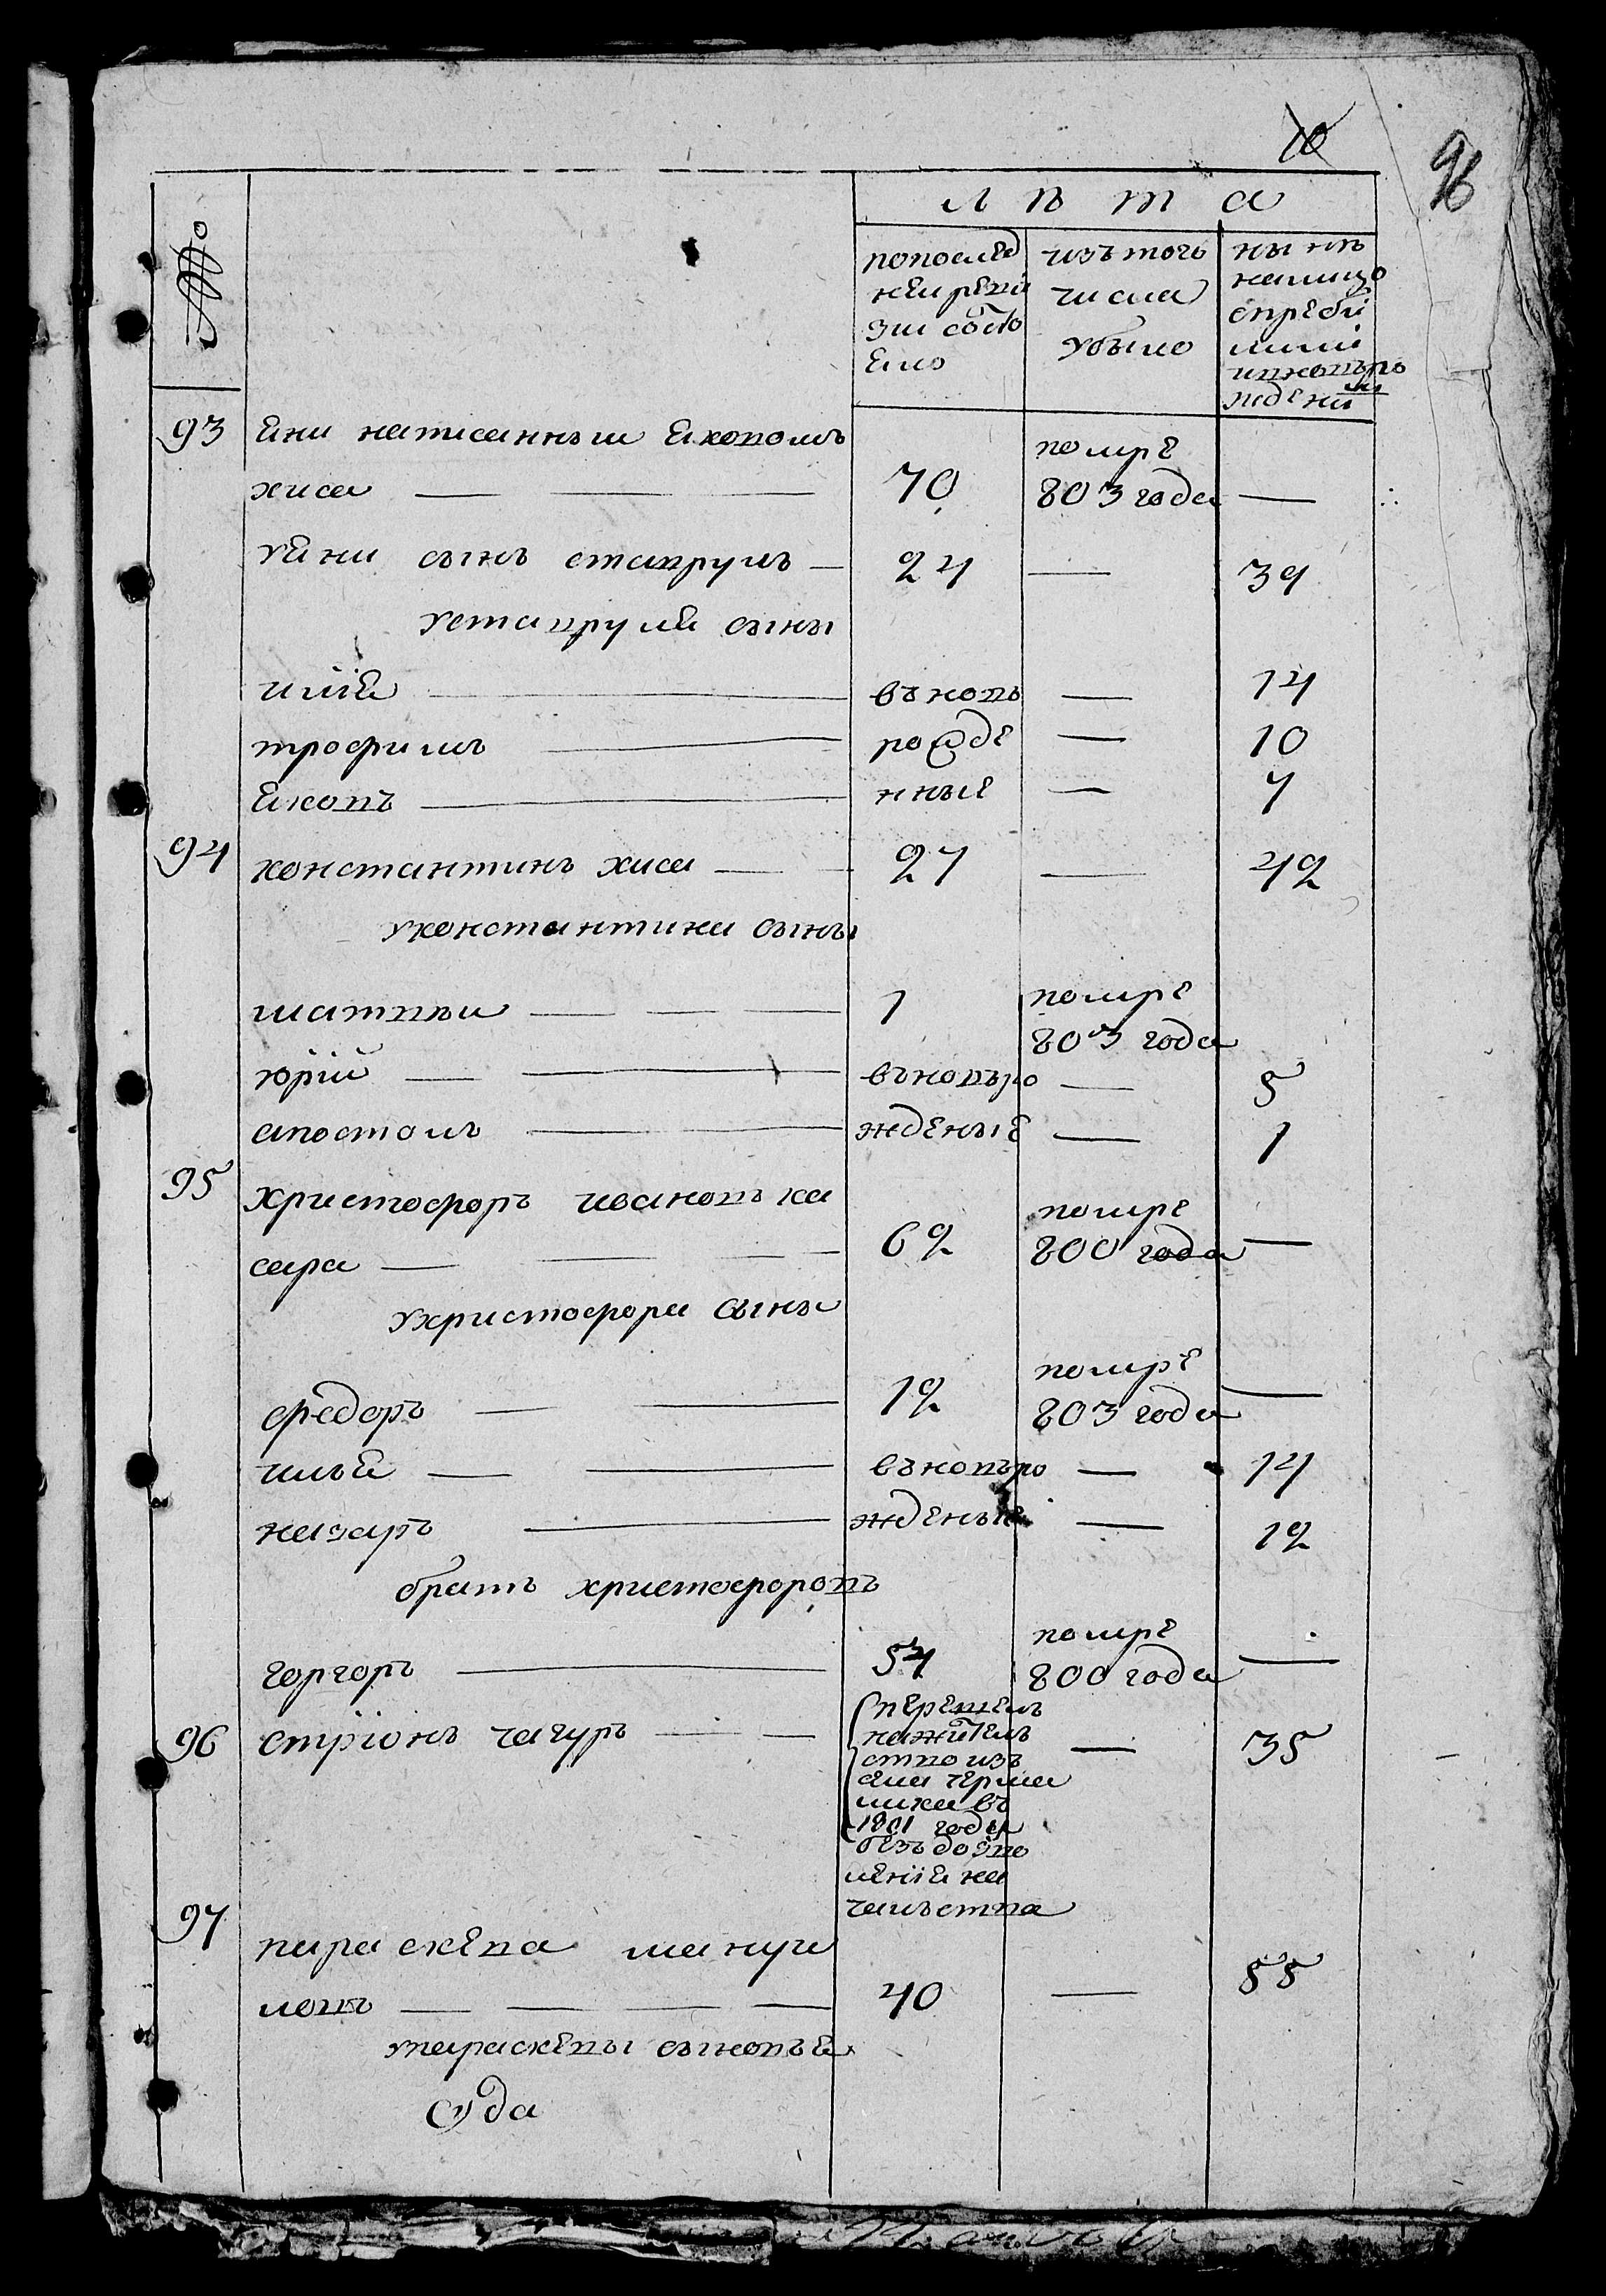 10
96
№
лѣта
по послед
неи реви
зии состо
ело
изъ того
числа
убыло
нынѣ
на лицо
с прибы
лими
и новъро
жде ни
ми
93 Яни написанныи Яковомъ
хиса — 70 помре 803 года —
У Яни сынъ ставрулъ — 24 — 39
У ставруля сыны
илїя — въновь — 14
трофимъ — рожде — 10
Яковъ — нные — 7
94 константинъ хиса — 27 — 42
У константина сыны
матвѣи — 1 помре 803 года
юрїй — въновъро — 5
апостолъ — жденые — 1
95 христофоръ ивановъ ка
сара — 62 помре 800 года —
У христофора сынъи
федоръ — 12 помре 803 года —
илья — въновъро — 14
назаръ — жденые — 12
братъ христофоровъ
горгоръ — 54 помре 800 года —
96 стрїонъ чагуръ — перешелъ — 35
на жител
ство изъ
села черма
лика въ
1801 году
безъ дозво
ленїя на
чальства
97 параскева мануи
ловъ — 40 — 55
У параскевы сыновья
Ѳода